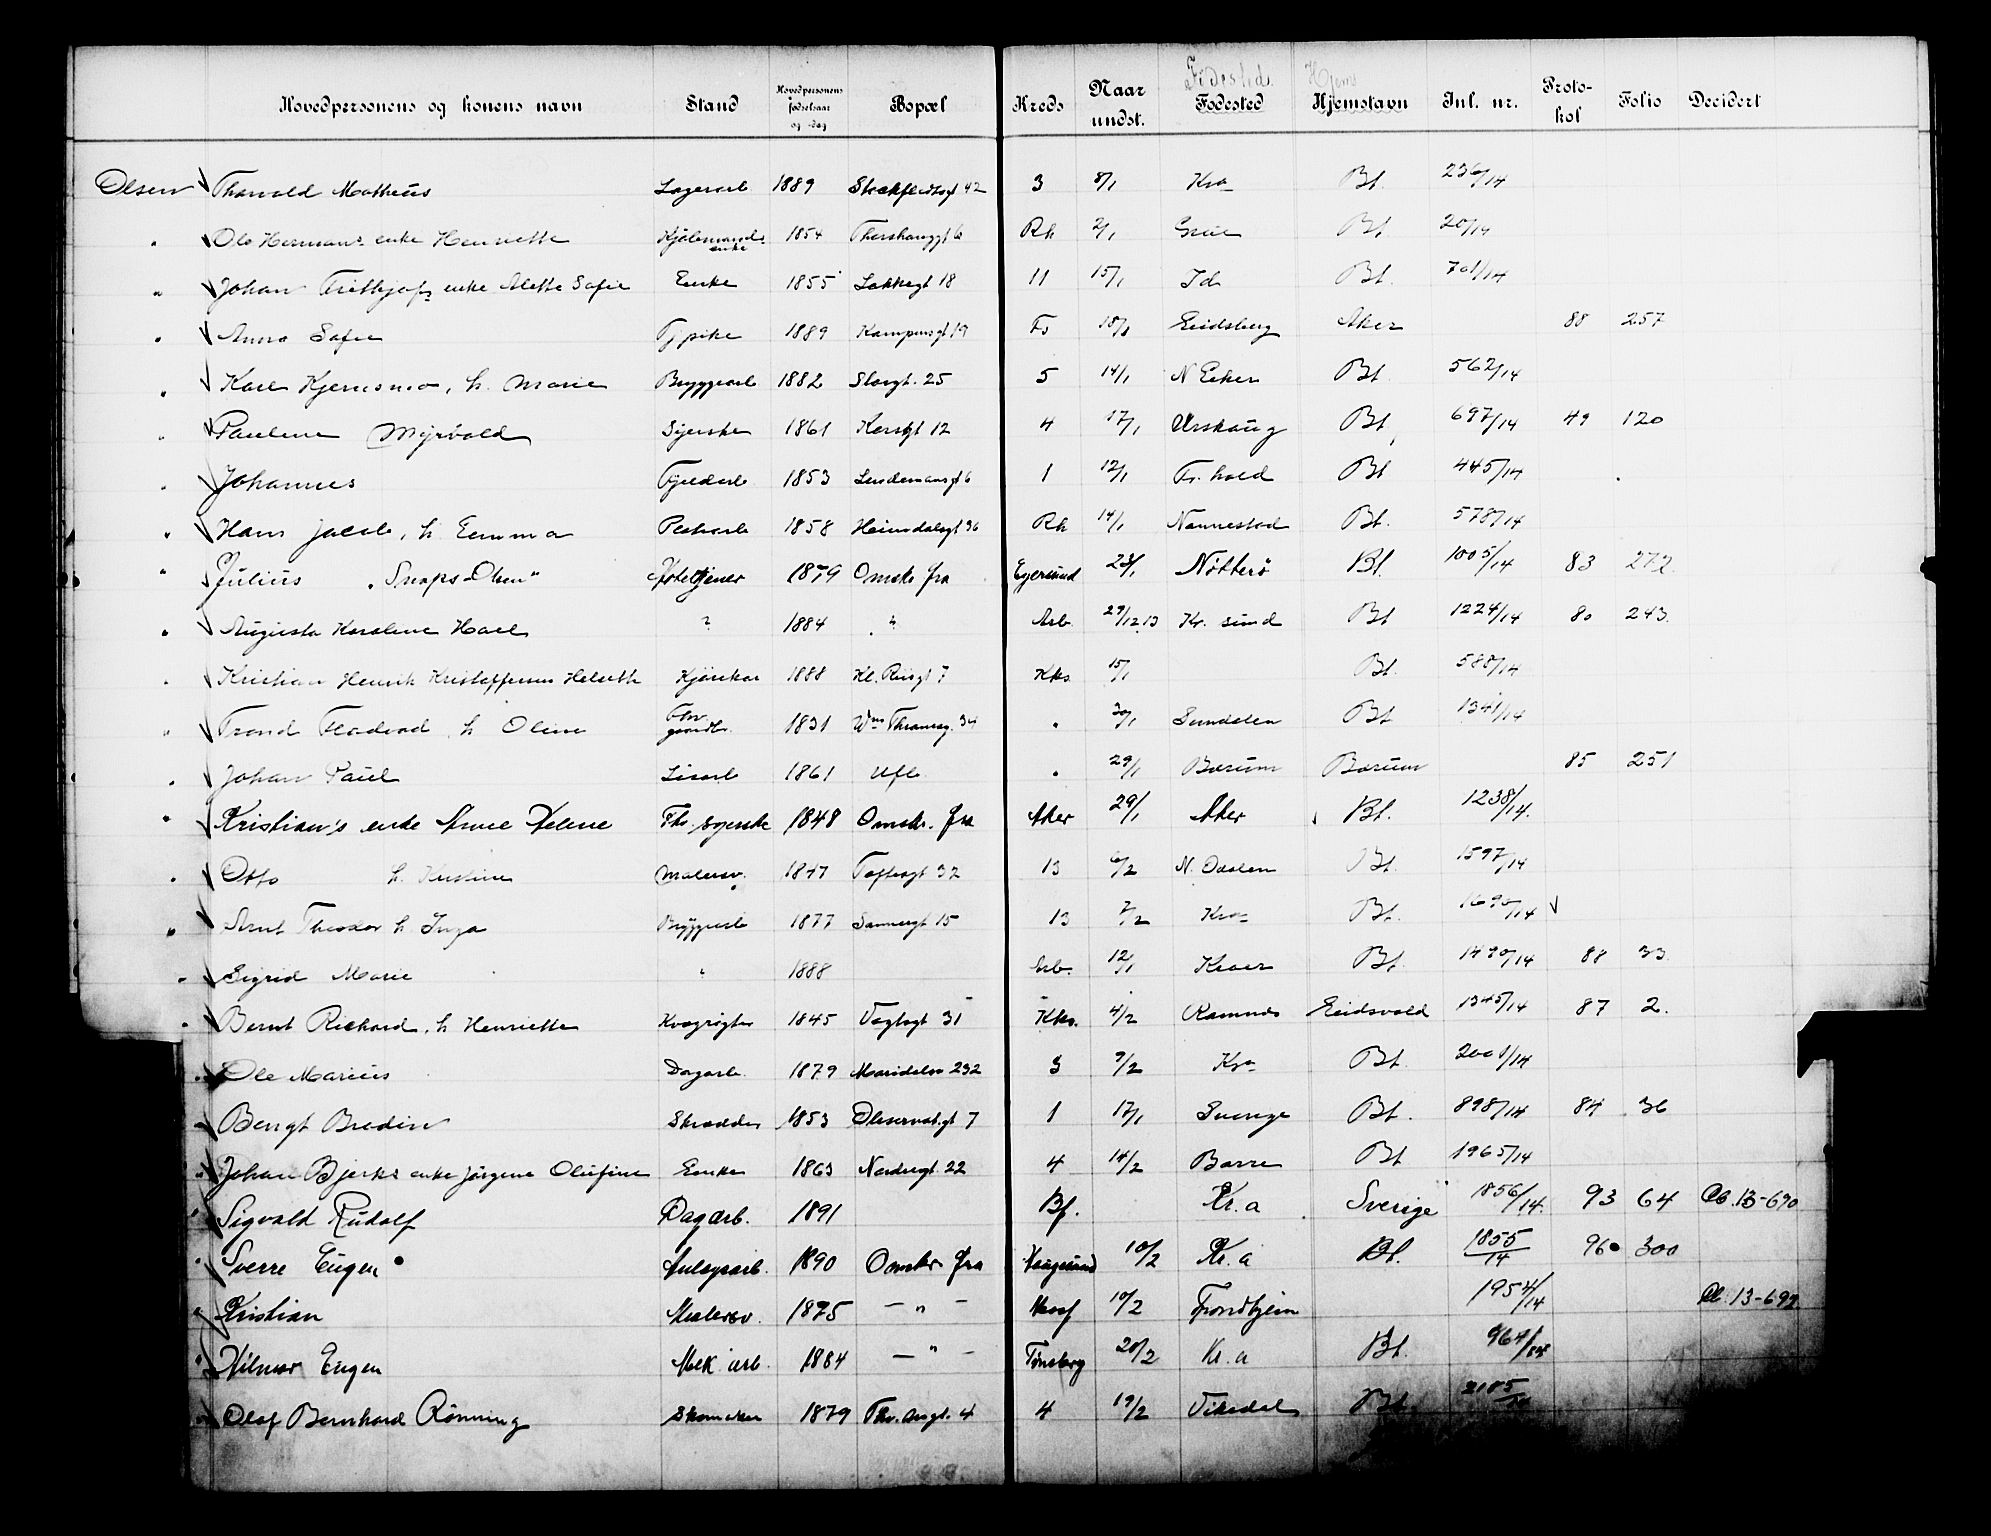 Hovedpersonens og konens navn Stand Hovedpersonens fødselsaar og -dag Bopæl Kreds Naar undst. Fødested Hjemstavn Jnl. nr. Protokol Folio Decidert
Fødested. Hjems
Olsen Thorvald Matheus Lagerarb 1889 42 3 8/1 Kra Bt. 236/14
" Ole Hermans enke Henriette Kjølemands enke 1854 Thorshauggt 6 Rh 2/1 Grue Bt 20/14
" Johan Frithjofs enke Alette Sofie Enke 1855 Lakkegt 18 11 15/1 Id Bt. 701/14
" Anna Sofie Tjpike 1889 Kampensgt 19 Fs Eidsberg Aker 88 257
" Karl Kjernsmo, h. Marie Bryggearb 1882 Storgt. 25 5 14/1 N Eker Bt. 562/14
" Pauline Myrvold Syerske 1861 Korsgt 12 4 17/1 Urskoug Bt. 697/14 49 120
" Johannes 1853 Lindemansgt 6 1 12/1 Fr. hald Bt 445/14
" Hans Jacob, h. Emma 1858 Heimdalsgt 36 Rh 14/1 Nannestad Bt. 578/14
" Julius "Snaps-Olsen" Hoteltjener 1879 Omsk. fra Egersund 23/1 Nøtterø Bt. 1005/14 83 272
" Augusta Karoline Hoel " 1884 " Arb. 29/12 13 Kr. sund Bt 1224/14 80 243.
" Kristian Henrik Kristoffersen Helseth Kjørekar 1888 Kl. Riisgt 7 Kks 15/1 Bt. 588/14
" Trond Fladvad h Oline Fhv gaardb. 1831 Wm Thranesg. 34 " 30/1 Sundalen Bt 1341/14
" Johan Paul 1861 Ufb. " 29/1 Bærum Bærum 85 251
" Kristian's enke Anne Helene Fhv. syerske 1848 Omsk. fra Aker 29/1 Aker Bt. 1238/14.
" Otto h. Kristine Malersv. 1847 Toftesgt 32 13 6/2 N. Odalen Bt. 1597/14
" Arnt Theodor h Inga Bryggearb 1877 Sannergt 15 13 7/2 Kra Bt. 1690/14
" Sigrid Marie " 1888 Arb. 12/1 Kroer Bt. 1490/14 88 33.
" Bernt Richard, h Henriette Kvægrøgter 1845 Vogtsgt 31 Kks. 4/2 Ramnes Eidsvold 1345/14 87 2.
" Ole Marius Dagarb. 1879 Maridalsv 232 3 9/2 Kra Bt. 2001/14
" Bengt Bredin Skrædder 1853 Observat.gt 7 1 17/1 Sverige Bt. 898/14 84 36
" Johan Bjerkes enke Jørgine Olufine Enke 1863 Nordregt 22 4 14/2 Borre Bt 1965/14
" Sigvald Rudolf Dagarb. 1891 Bf. Kr.a Sverige 1856/14. 93 64 Cb. 13-690
" Sverre Eugen 1890 Omsk. fra Haugesund 10/2 Kr.a Bt. 1855/14 96 300
" Kristian Malersv. 1875 — " — 10/2 Trondhjem 1954/14 Cb. 13-692
" Hilmar Eugen Mek. arb. 1884 — " — Tønsberg 20/2 Kr.a Bt.
" Olaf Bernhard Rønning Skomaker 1879 4 4 19/2 Vikedal Bt. 2185/14